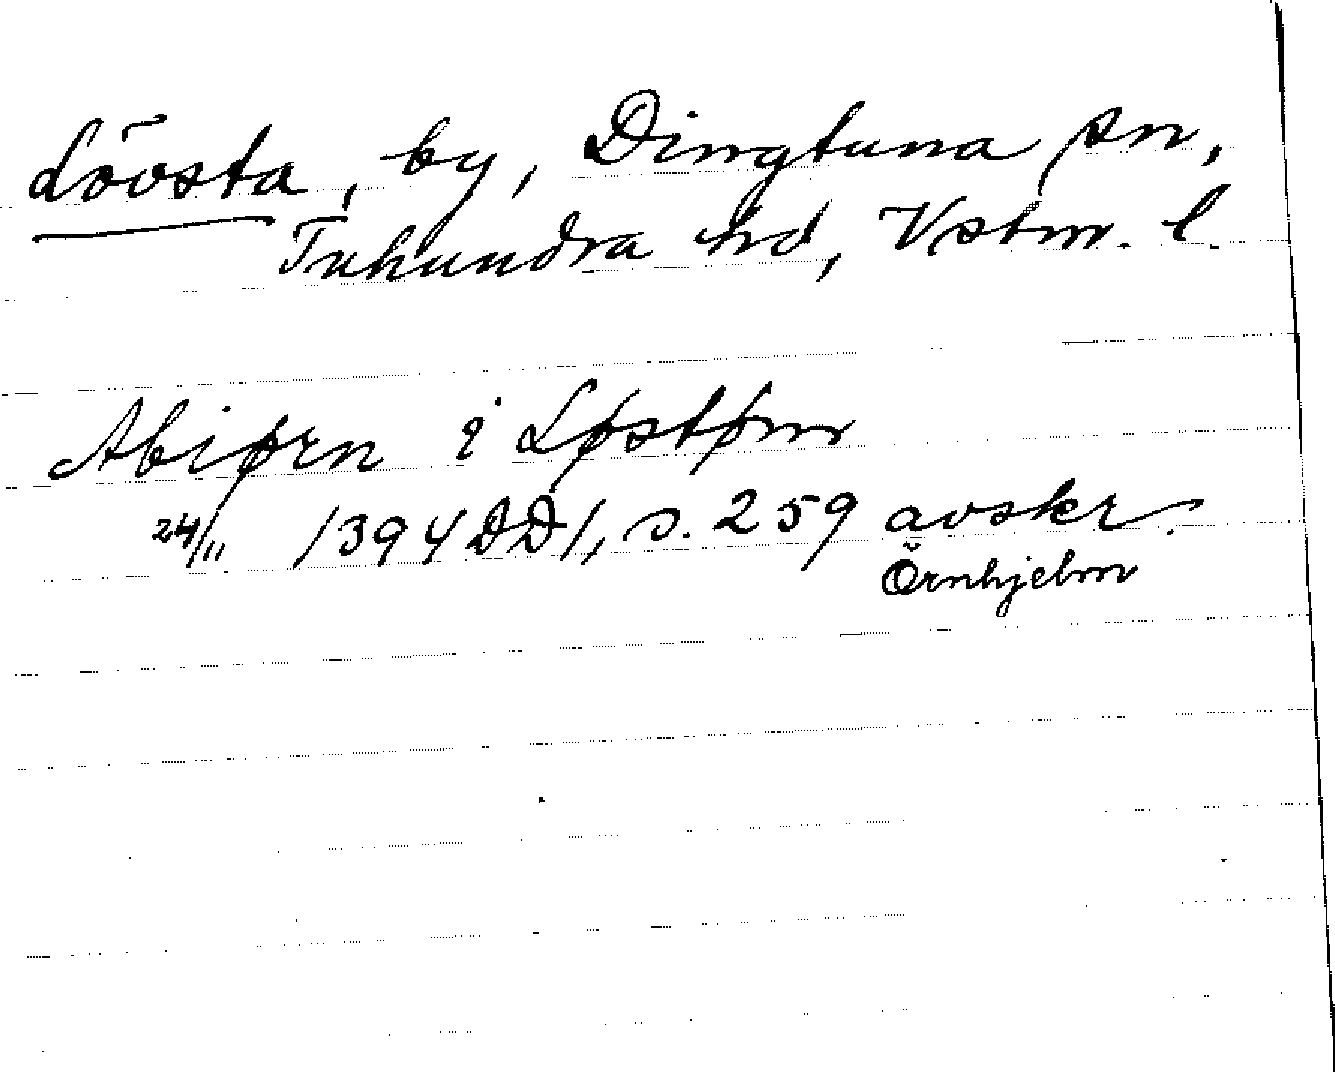 Lövsta, by, Dingtuna sn,
Tuhundra hd, Vstm. l.
Abiørn i Løstøm
24/11 1394 DD1, s. 259 avskr.
Örnhjelm